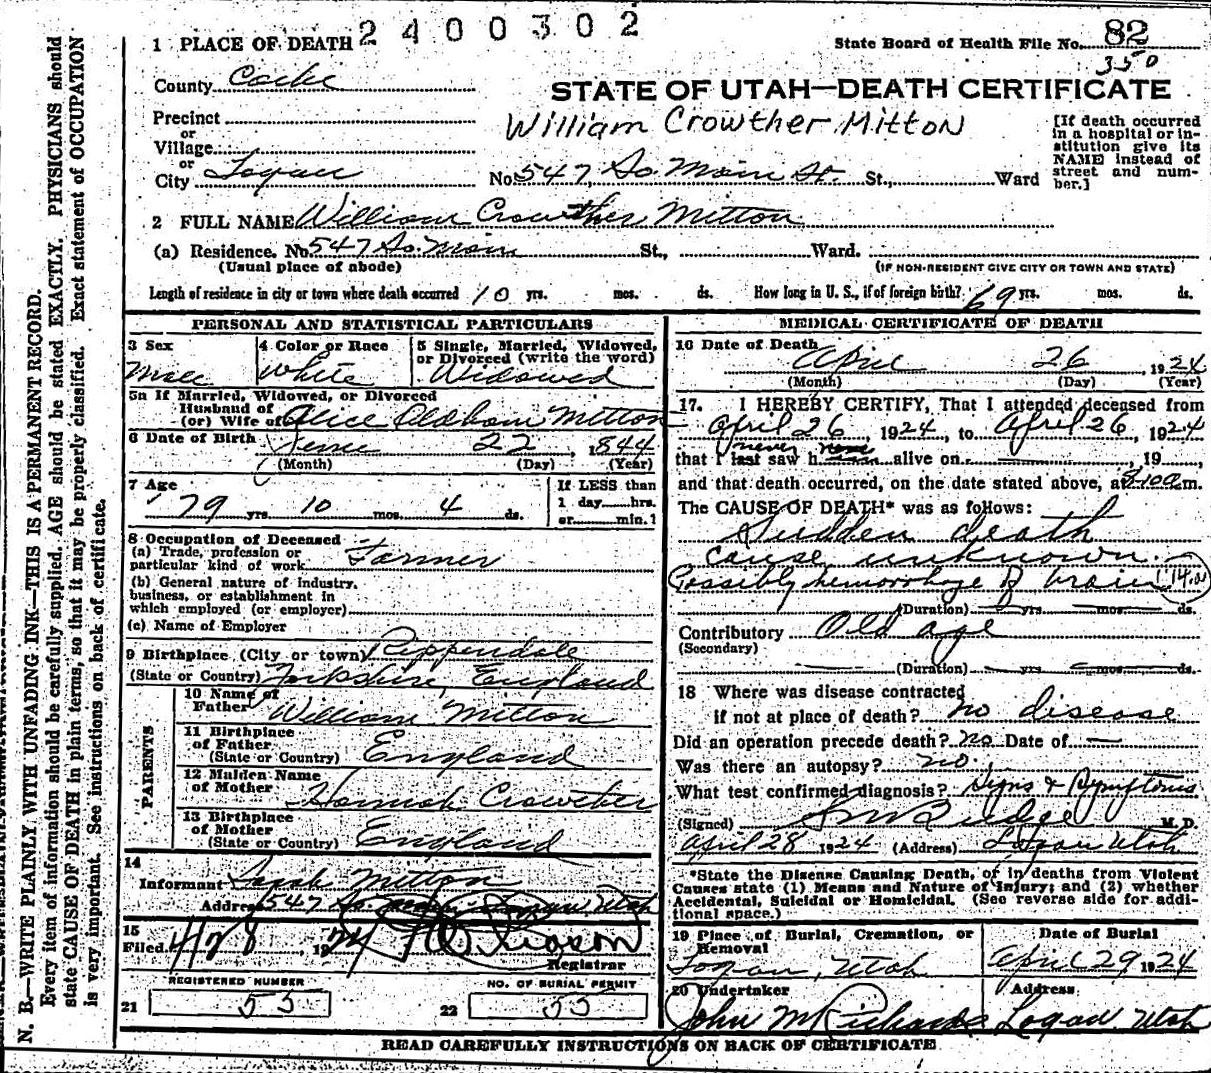 2400302
State Board of Health File No. 82
350
1 PLACE OF DEATH
County Cache
STATE OF UTAH—DEATH CERTIFICATE
Precinct
or
Village
or
City Logan
William Crowther Mitton
No. 547, So. Main St. St., Ward
[If death occurred
in a hospital or in-
stitution give its
NAME instead of
street and num-
ber.]
2 FULL NAME William Crowther Mitton
(a) Residence. No. 547 So. Main St., Ward.
(Usual place of abode) (IF NON-RESIDENT GIVE CITY OR TOWN AND STATE)
Length of residence in city or town where death occurred 10 yrs. mos. ds. How long in U. S., if of foreign birth? 69 yrs. mos. ds.
PERSONAL AND STATISTICAL PARTICULARS
3 Sex
Male
4 Color or Race
White
5 Single, Married, Widowed,
or Divorced (write the word)
Widowed
5a If Married, Widowed, or Divorced
Husband of
(or) Wife of Alice Oldham Mitton
6 Date of Birth June 22, 1844
(Month) (Day) (Year)
7 Age
79 yrs. 10 mos. 4 ds.
If LESS than
1 day hrs.
or min.?
8 Occupation of Deceased
(a) Trade, profession or
particular kind of work Farmer
(b) General nature of industry,
business, or establishment in
which employed (or employer)
(c) Name of Employer
9 Birthplace (City or town) Rippendale
(State or Country) Yorkshire, England
PARENTS
10 Name of
Father William Mitton
11 Birthplace
of Father
(State or Country) England
12 Maiden Name
of Mother Hannah Crowther
13 Birthplace
of Mother
(State or Country) England
14
Informant Sarah Mitton
Address 547 So. Main Logan Utah
15
Filed 4/28, 1924
Registrar
REGISTERED NUMBER
21 55
NO. OF BURIAL PERMIT
22 55
MEDICAL CERTIFICATE OF DEATH
16 Date of Death
April 26 1924
(Month) (Day) (Year)
17. I HEREBY CERTIFY, That I attended deceased from
April 26, 1924, to April 26, 1924
never
that I last saw h alive on , 19
and that death occurred, on the date stated above, at 8:00 a m.
The CAUSE OF DEATH* was as follows:
Sudden death
cause unknown.
Possibly hemorrhage of brain
(Duration) yrs mos ds.
Contributory Old age
(Secondary)
(Duration) yrs mos. ds.
18 Where was disease contracted
if not at place of death? no disease
Did an operation precede death? no Date of —
Was there an autopsy? no.
What test confirmed diagnosis? Signs & Symptoms
(Signed) S M Budge M. D.
April 28 1924 (Address) Logan Utah
*State the Disease Causing Death, or in deaths from Violent
Causes state (1) Means and Nature of Injury; and (2) whether
Accidental, Suicidal or Homicidal. (See reverse side for addi-
tional space.)
19 Place of Burial, Cremation, or
Removal
Logan, Utah
Date of Burial
April 29 1924
20 Undertaker
John M Richards
Address
Logan Utah
READ CAREFULLY INSTRUCTIONS ON BACK OF CERTIFICATE
N. B.—WRITE PLAINLY WITH UNFADING INK—THIS IS A PERMANENT RECORD.
Every item of information should be carefully supplied. AGE should be stated EXACTLY. PHYSICIANS should
state CAUSE OF DEATH in plain terms, so that it may be properly classified. Exact statement of OCCUPATION
is very important. See instructions on back of certificate.